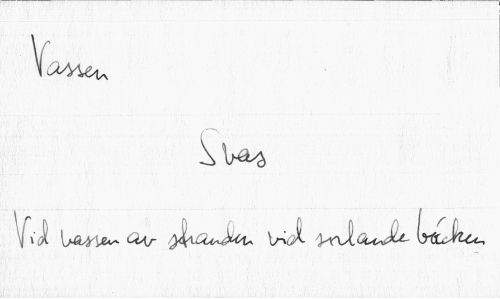 Vassen
Svas
Vid vassen av stranden vid sorlande bäcken